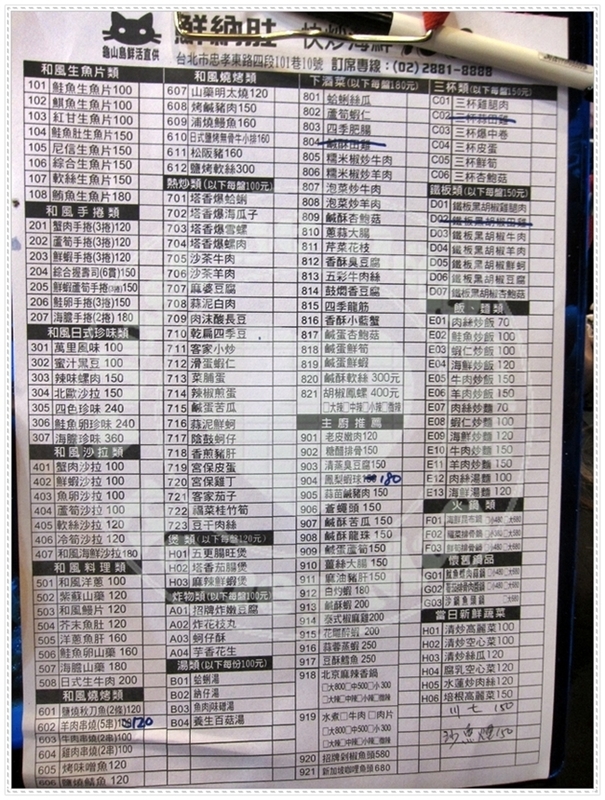 龜山島鮮活直供
鮮納肚 快炒海鮮
台北市忠孝東路四段101巷10號 訂席專線：(02) 2881-8888
和風生魚片類
101 鮭魚生魚片100
102 鯕魚生魚片100
103 紅甘生魚片100
104 鮭魚肚生魚片150
105 尼信生魚片150
106 綜合生魚片150
107 軟絲生魚片150
108 鮪魚生魚片180
和風手捲類
201 蟹肉手捲(3捲)120
202 蘆筍手捲(3捲)120
203 鮮蝦手捲(3捲)120
204 綜合握壽司(6貫)150
205 鮮蝦蘆筍手捲(3捲)150
206 鮭卵手捲(3捲)150
207 海膽手捲(2捲) 180
和風日式珍味類
301 萬里風味 100
302 蜜汁黑豆 100
303 辣味螺肉 150
304 北歐沙拉 150
305 四色珍味 240
306 鮭魚卵珍味 240
307 海膽珍味 360
和風沙拉類
401 蟹肉沙拉 100
402 鮮蝦沙拉 100
403 魚卵沙拉 100
404 蘆筍沙拉 100
405 軟絲沙拉 120
406 冷筍沙拉 120
407 和風海鮮沙拉180
和風料理類
501 和風洋蔥 100
502 紫蘇山藥 120
503 和風鰻片 120
504 芥末魚肚 120
505 洋蔥魚肝 160
506 鮭魚卵山藥 160
507 海膽山藥 180
508 日式生牛肉 200
和風燒烤類
601 鹽燒秋刀魚(2條)120
602 羊肉串燒(5串) 120
603 牛肉串燒(2串)100
604 雞肉串燒(2串)100
605 烤味噌魚 120
606 鹽燒鯖魚 120
和風燒烤類
607 山藥明太燒120
608 烤鹹豬肉 150
609 浦燒鰻魚 160
610 日式鹽烤無骨牛小排160
611 松阪豬160
612 鹽烤軟絲300
熱炒類(以下每盤100元)
701 塔香爆蛤蜊
702 塔香爆海瓜子
703 塔香爆雪螺
704 塔香爆螺肉
705 沙茶牛肉
706 沙茶羊肉
707 麻婆豆腐
708 蒜泥白肉
709 肉沫酸長豆
710 乾扁四季豆
711 客家小炒
712 滑蛋蝦仁
713 菜脯蛋
714 辣椒煎蛋
715 鹹蛋苦瓜
716 蒜泥鮮蚵
717 陰鼓蚵仔
718 香煎豬肝
719 宮保皮蛋
720 宮保雞丁
721 客家茄子
722 福菜桂竹筍
723 豆干肉絲
煲 類(以下每盤120元)
H01 五更腸旺煲
H02 塔香茄腸煲
H03 麻辣鮮蝦煲
炸物類(以下每盤100元)
A01 招牌炸嫩豆腐
A02 炸花枝丸
A03 蚵仔酥
A04 芋香花生
湯類(以下每份100元)
B01 蛤蜊湯
B02 納仔湯
B03 魚肉味噌湯
B04 養生百菇湯
下酒菜(以下每盤180元)
801 蛤蜊絲瓜
802 蘆筍蝦仁
803 四季肥腸
804 鹹酥田雞
805 糯米椒炒牛肉
806 糯米椒炒羊肉
807 泡菜炒牛肉
808 泡菜炒羊肉
809 鹹酥杏鮑菇
810 蔥蒜大腸
811 芹菜花枝
812 香酥臭豆腐
813 五彩牛肉絲
814 鼓燜香豆腐
815 四季龍筋
816 香酥小藍蟹
817 鹹蛋杏鮑菇
818 鹹蛋鮮筍
819 鹹蛋鮮蝦
820 鹹酥軟絲 300元
821 胡椒鳳螺 400元
□大辣□中辣□小辣□微辣
主廚推薦
901 老皮嫩肉120
902 糖醋排骨150
903 清蒸臭豆腐150
904 鳳梨蝦球 180
905 蒜苗鹹豬肉 150
906 蒼蠅頭 150
907 鹹酥苦瓜 150
908 鹹酥龍珠 150
909 鹹蛋蘆筍150
910 薑絲大腸 150
911 麻油豬肝150
912 白灼蝦 180
913 鹹酥蝦 200
914 泰式椒麻雞200
915 花雕醉蝦 200
916 蒜蓉蒸蝦 250
917 豆酥鱈魚 250
918 北京麻辣香鍋
□大800□中500□小300
□大辣□中辣□小辣□微辣
919 水煮□牛肉 □肉片
□大800□中500□小300
□大辣□中辣□小辣□微辣
920 招牌剁椒魚頭580
921 新加坡咖哩魚頭680
三杯類(以下每盤150元)
C01 三杯雞腿肉
C02 三杯蒜田雞
C03 三杯爆中卷
C04 三杯皮蛋
C05 三杯鮮筍
C06 三杯杏鮑菇
鐵板類(以下每盤150元)
D01 鐵板黑胡椒雞腿肉
D02 鐵板黑胡椒田雞
D03 鐵板黑胡椒牛肉
D04 鐵板黑胡椒羊肉
D05 鐵板黑胡椒鮮蚵
D06 鐵板黑胡椒豆腐
D07 鐵板黑胡椒杏鮑菇
飯、麵類
E01 肉絲炒飯 70
E02 鮭魚炒飯 100
E03 蝦仁炒飯 100
E04 海鮮炒飯 120
E05 牛肉炒飯 150
E06 羊肉炒飯 150
E07 肉絲炒麵 70
E08 蝦仁炒麵 100
E09 海鮮炒麵 120
E10 牛肉炒麵 150
E11 羊肉炒麵 150
E12 肉絲湯麵 100
E13 海鮮湯麵 120
火鍋類
F01
F02
F03
懷舊鍋品
G01
G02
G03 沙鍋魚頭鍋
當日新鮮蔬菜
H01 清炒高麗菜100
H02 清炒空心菜100
H03 清炒絲瓜120
H04 腐乳空心菜120
H05 水蓮炒肉絲120
H06 培根高麗菜150
川七 150
沙魚煙150